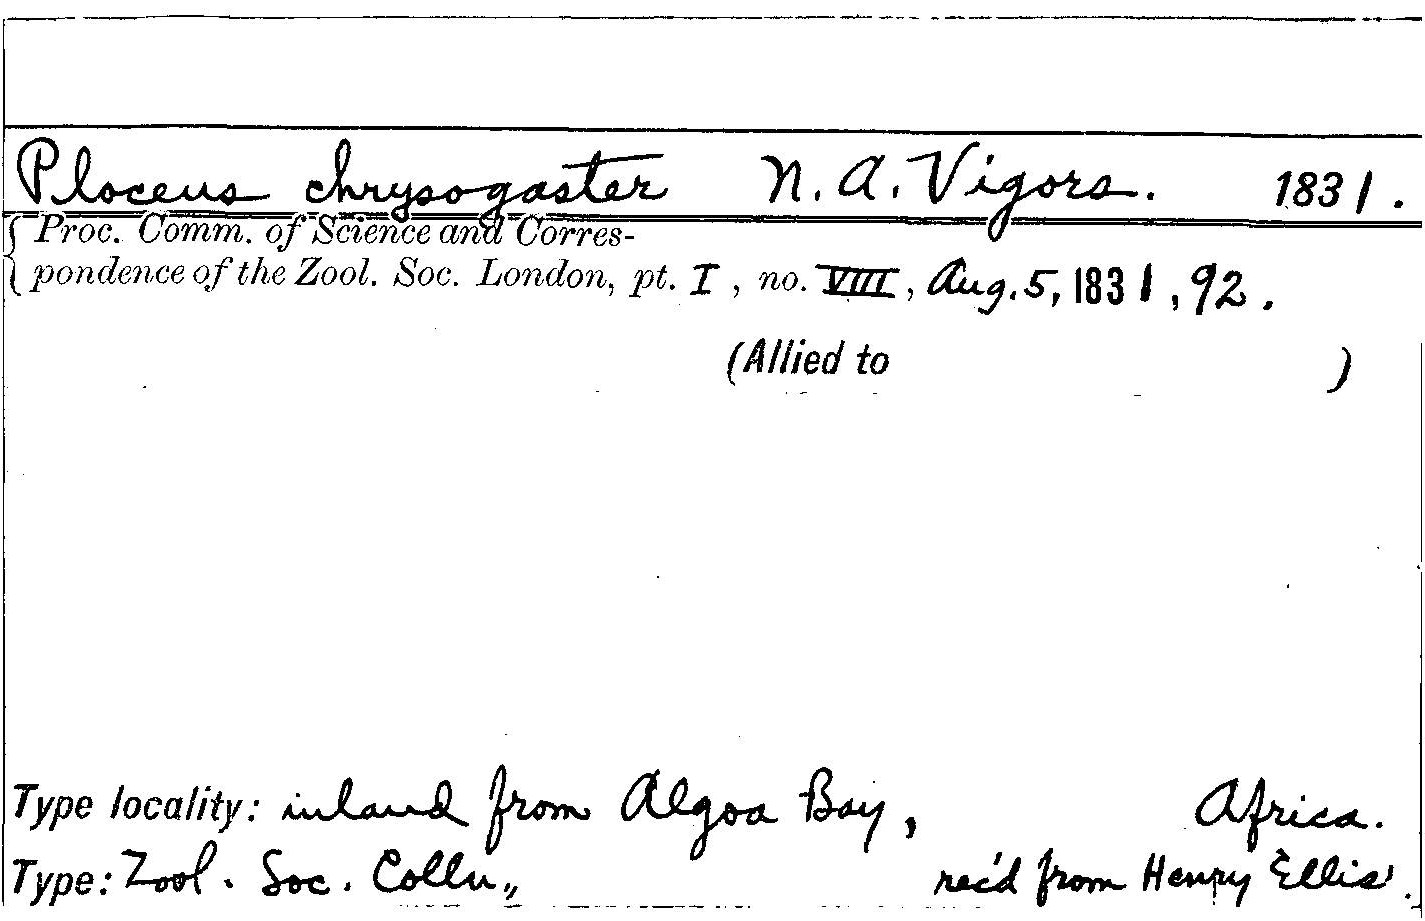 Ploceus chrysogaster N. A. Vigors. 1831.
Proc. Comm. of Science and Corres-
pondence of the Zool. Soc. London, pt. I, no. VIII, Aug. 5, 1831, 92.
(Allied to )
Type locality: inland from Algoa Bay, Africa.
Type: Zool. Soc. Colln., rec'd from Henry Ellis.